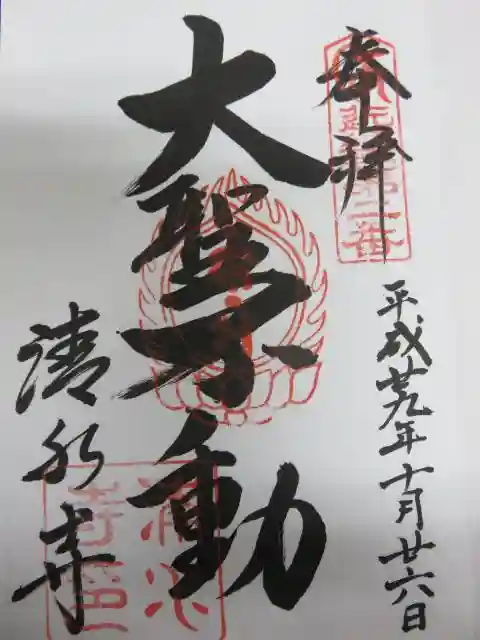 奉拝
平成廿九年十月廿六日
大聖不動
清水寺